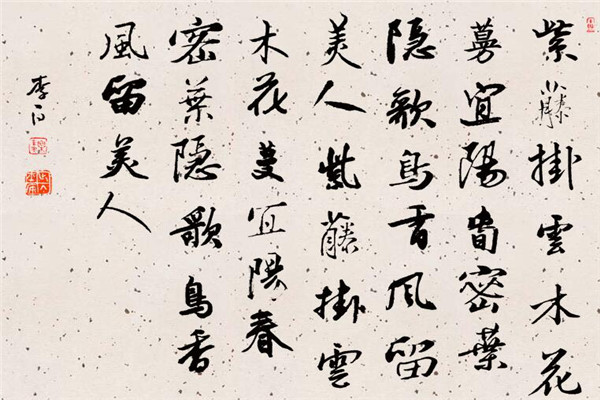 紫藤掛雲木花
蔓宜陽旾密葉
隐歌鳥香风留
美人紫藤掛雲
木花蔓宜陽春
密葉隐歌鳥香
風留美人
李